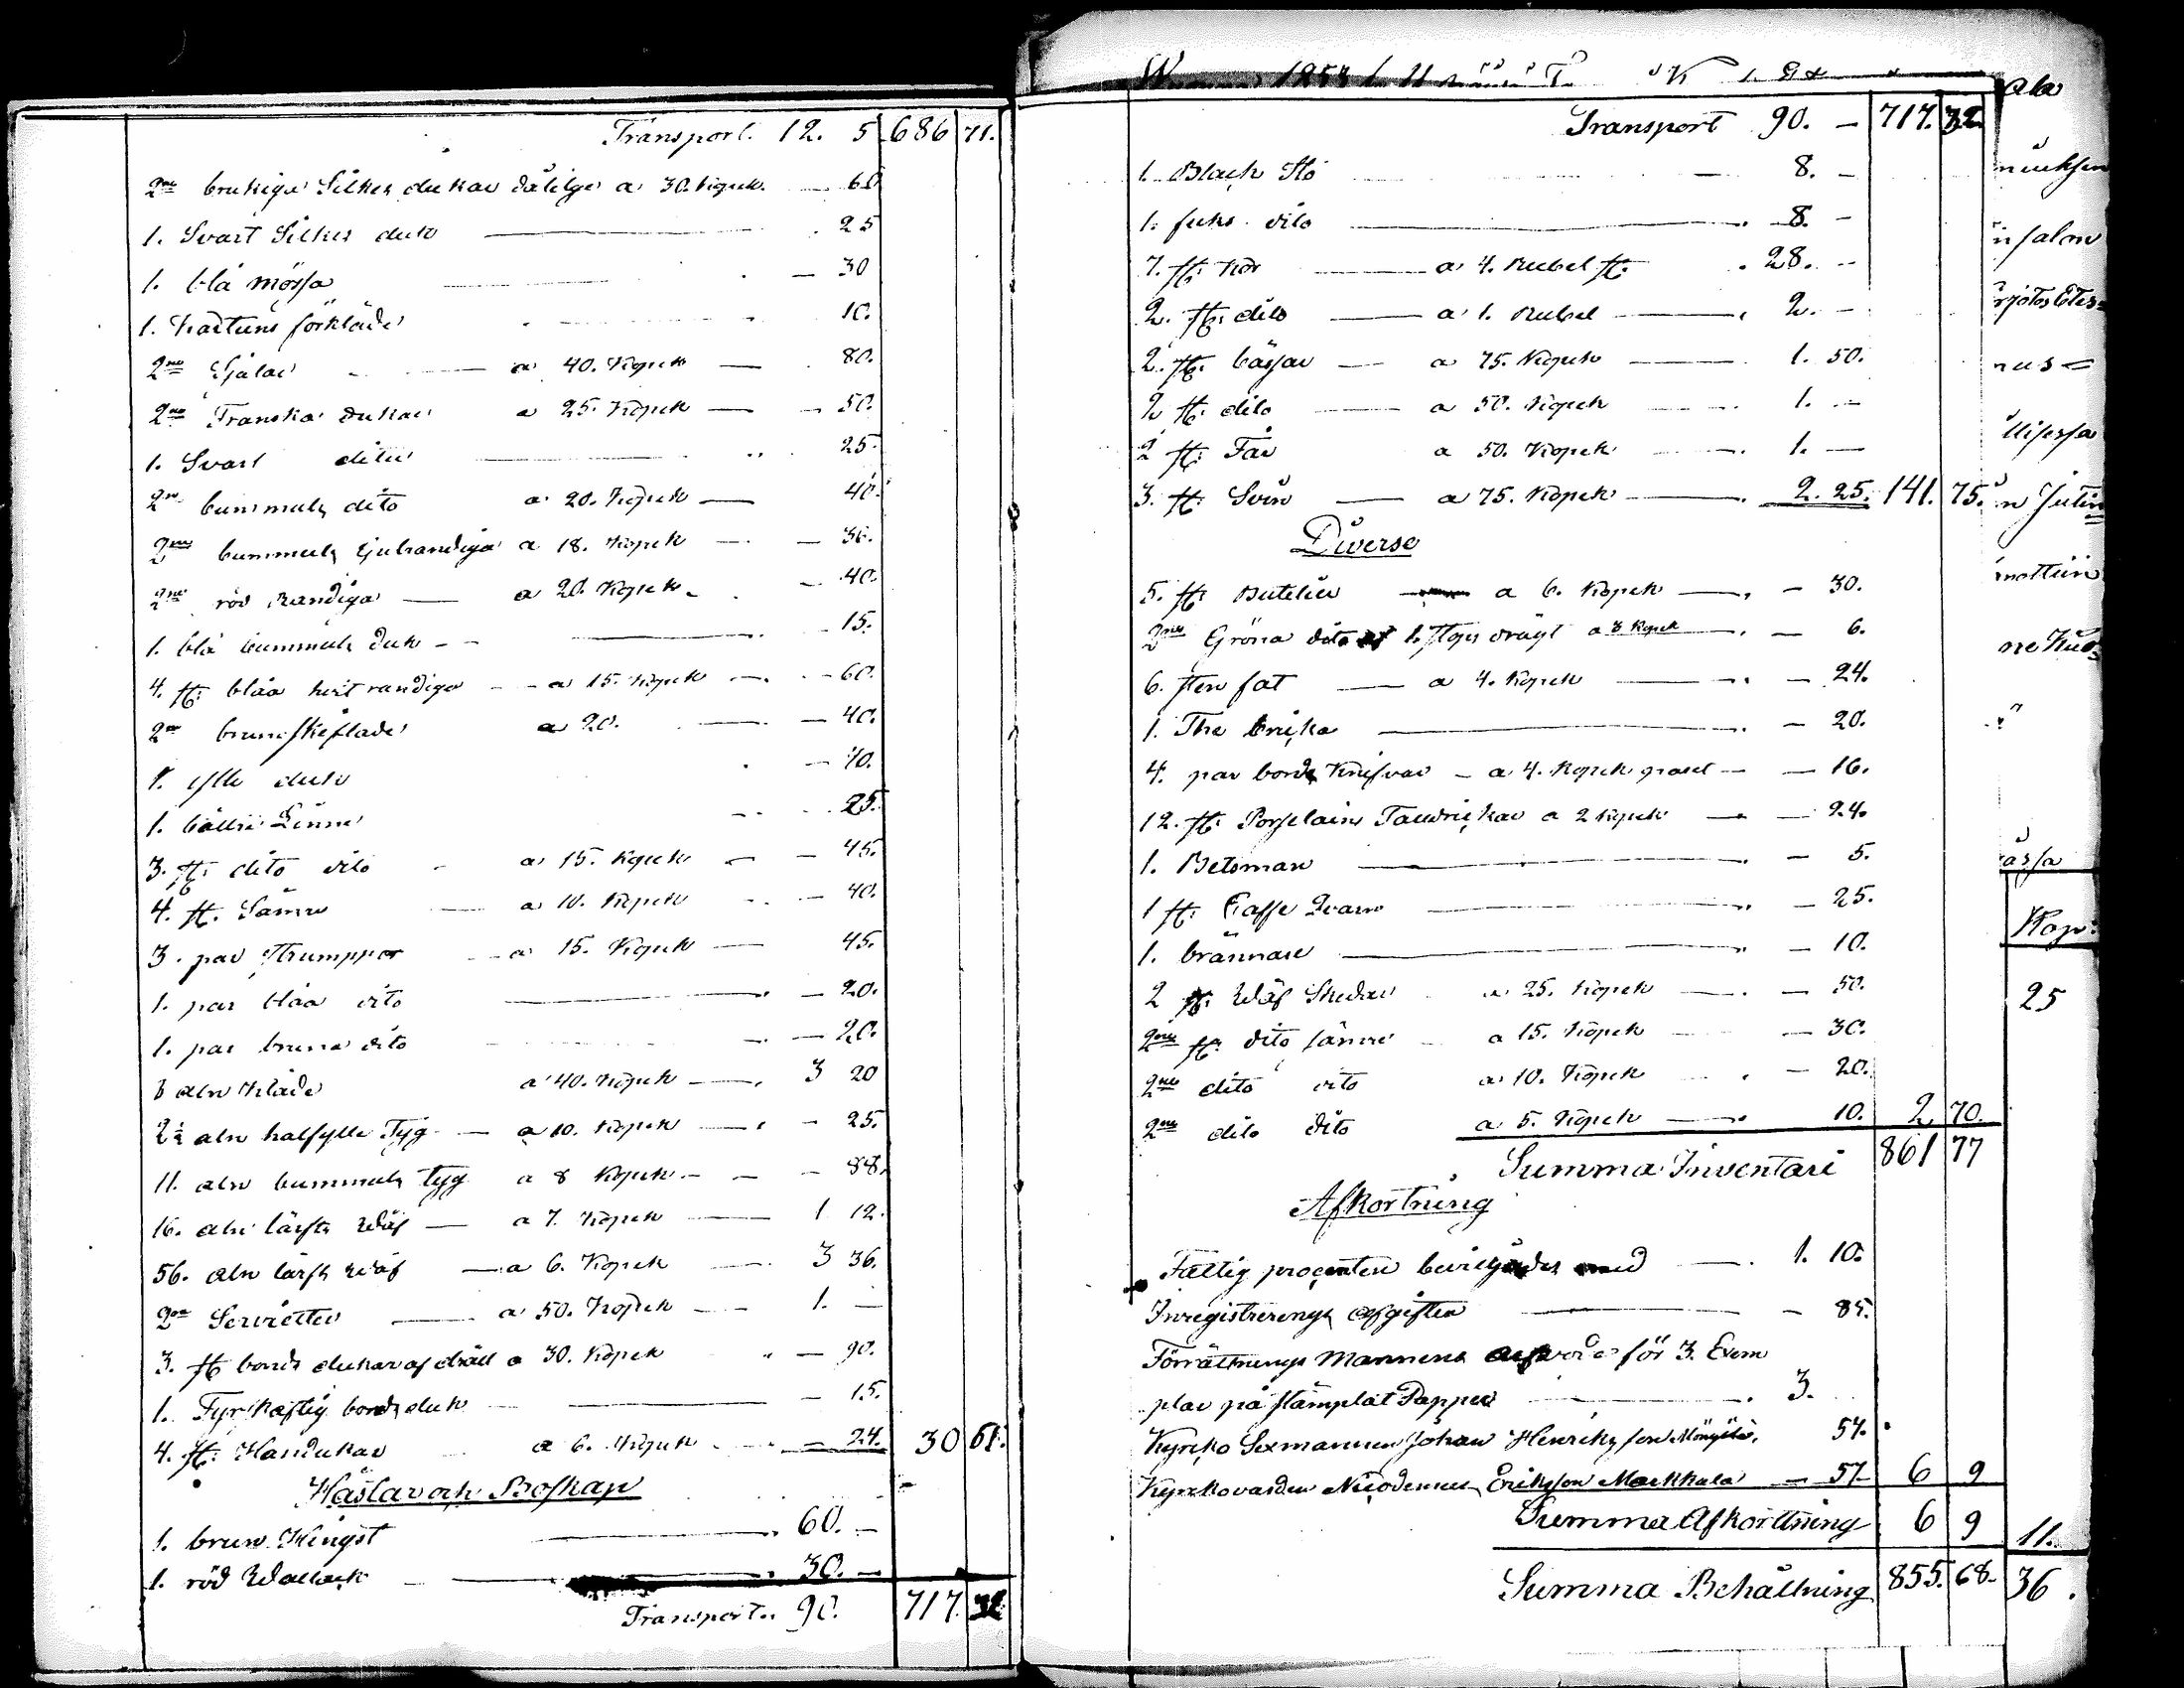 Transport. 12. 5 686 71.
2ne brukiga Silkes dukar dålige a 30. Kopek. — 60
1. Svart Silkes duk — 25
1. blå mössa — 30
1. Kattuns förkläde 10.
2ne Sjalar a 40. Kopek — 80.
2ne Franska dukar a 25. Kopek — 50.
1. Svart dito 25.
2ne bummuls dito a 20. Kopek — 40.
2ne bummuls ljusrandiga a 18. Kopek — 36.
2ne röd Randiga — a 20. Kopek — 40.
1. blå bummuls duk — 15.
4. st: blåa hvit randiga — a 15. Kopek — 60.
2ne brunskiflade a 20. — 40.
1. ylle duk — 10.
1. bättre Linne 25.
3. st: dito dito a 15. Kopek — 45.
4. st. Sämre a 10. Kopek — 40.
3. par Strumppor a 15. Kopek — 45.
1. par blåa dito — 20.
1. par bruna dito — 20.
8 aln Kläde a 40. Kopek — 3 20
2½ aln halfylle Tyg — a 10. Kopek — 25.
11. aln bummuls tyg a 8 Kopek — 88.
16. aln lärfts Wäf — a 7. Kopek — 1 12.
56. aln lärfts wäf — a 6. Kopek — 3 36.
2ne Servietter — a 50. Kopek — 1. —
3. st bords dukar af dräll a 30. Kopek — 90.
1. Fyrskaftig bords duk — 15.
4. st: Handukar a 6. Kopek — 24. 30 61.
Hästar och Boskap
1. brun Hingst — 60. —
1. röd Wallack — 30. —
Transport.. 90. 717. 32
Transport 90. — 717. 32.
1. Black Sto — 8. —
1. fuks dito — 8. —
7. st: Kor — a 4. Rubel st: 28. —
2. st: dito — a 1. Rubel — 2. —
2. st: bässar — a 75. Kopek — 1. 50.
2 st: dito — a 50. Kopek — 1. —
2 st: Får a 50. Kopek — 1. —
3. st: Svin — a 75. Kopek — 2. 25. 141. 75.
Diverse
5. st: Butelier a 6. Kopek — 30.
2ne Gröna dito 1. stops drägt a 3 Kopek — 6.
6. sten fat — a 4. Kopek — 24.
1. The bricka — 20.
4. par bords Knifvar — a 4. Kopek paret — 16.
12. st: Porslains Talldrickar a 2 Kopek — 24.
1. Betsman — 5.
1 st: Caffe Qvarn — 25.
1. brännare — 10.
2 st: Wäf Skedar a 25. Kopek — 50.
2ne st: dito sämre a 15. Kopek — 30.
2ne dito dito a 10. Kopek — 20.
2ne dito dito a 5. Kopek — 10. 2 70.
Summa Inventari 861 77
Afkortning
Fattig procenten beviljades med — 1. 10.
Inregistrerings afgiften — 85.
Förrättnings Mannens arfvode för 3. Exem
plar på stämplat Papper — 3.
Kyrcko Sexmannen Johan Henricksson 57.
Kyrkovarden Nicodemus Eriksson Markkula — 57 6 9
Summa Afkorttning 6 9
Summa Behållning 855. 68.
Kop:
25
11.
36.